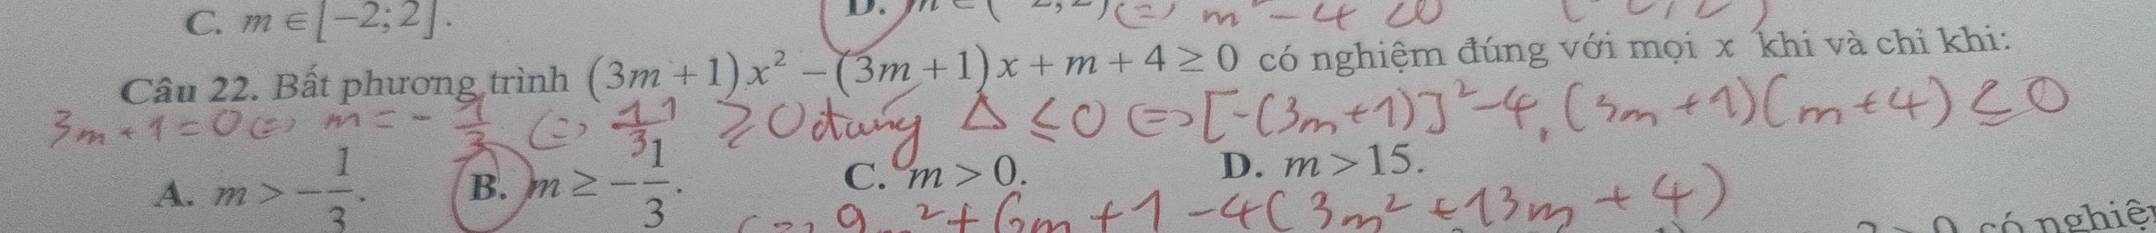 C. m ∈ [−2; 2].
D.
⇔ m² − 4 ≤ 0
Câu 22. Bất phương trình (3m + 1)x² − (3m + 1)x + m + 4 ≥ 0 có nghiệm đúng với mọi x khi và chỉ khi:
3m + 1 = 0 ⇔ m = −1/3 ⇔ 11/3 ≥ 0 đúng Δ ≤ 0 ⇔ [−(3m + 1)]² − 4.(3m + 1)(m + 4) ≤ 0
A. m > −1/3. B. m ≥ −1/3. C. m > 0. D. m > 15.
⇔ 9m² + 6m + 1 − 4(3m² + 13m + 4)
có nghiệ